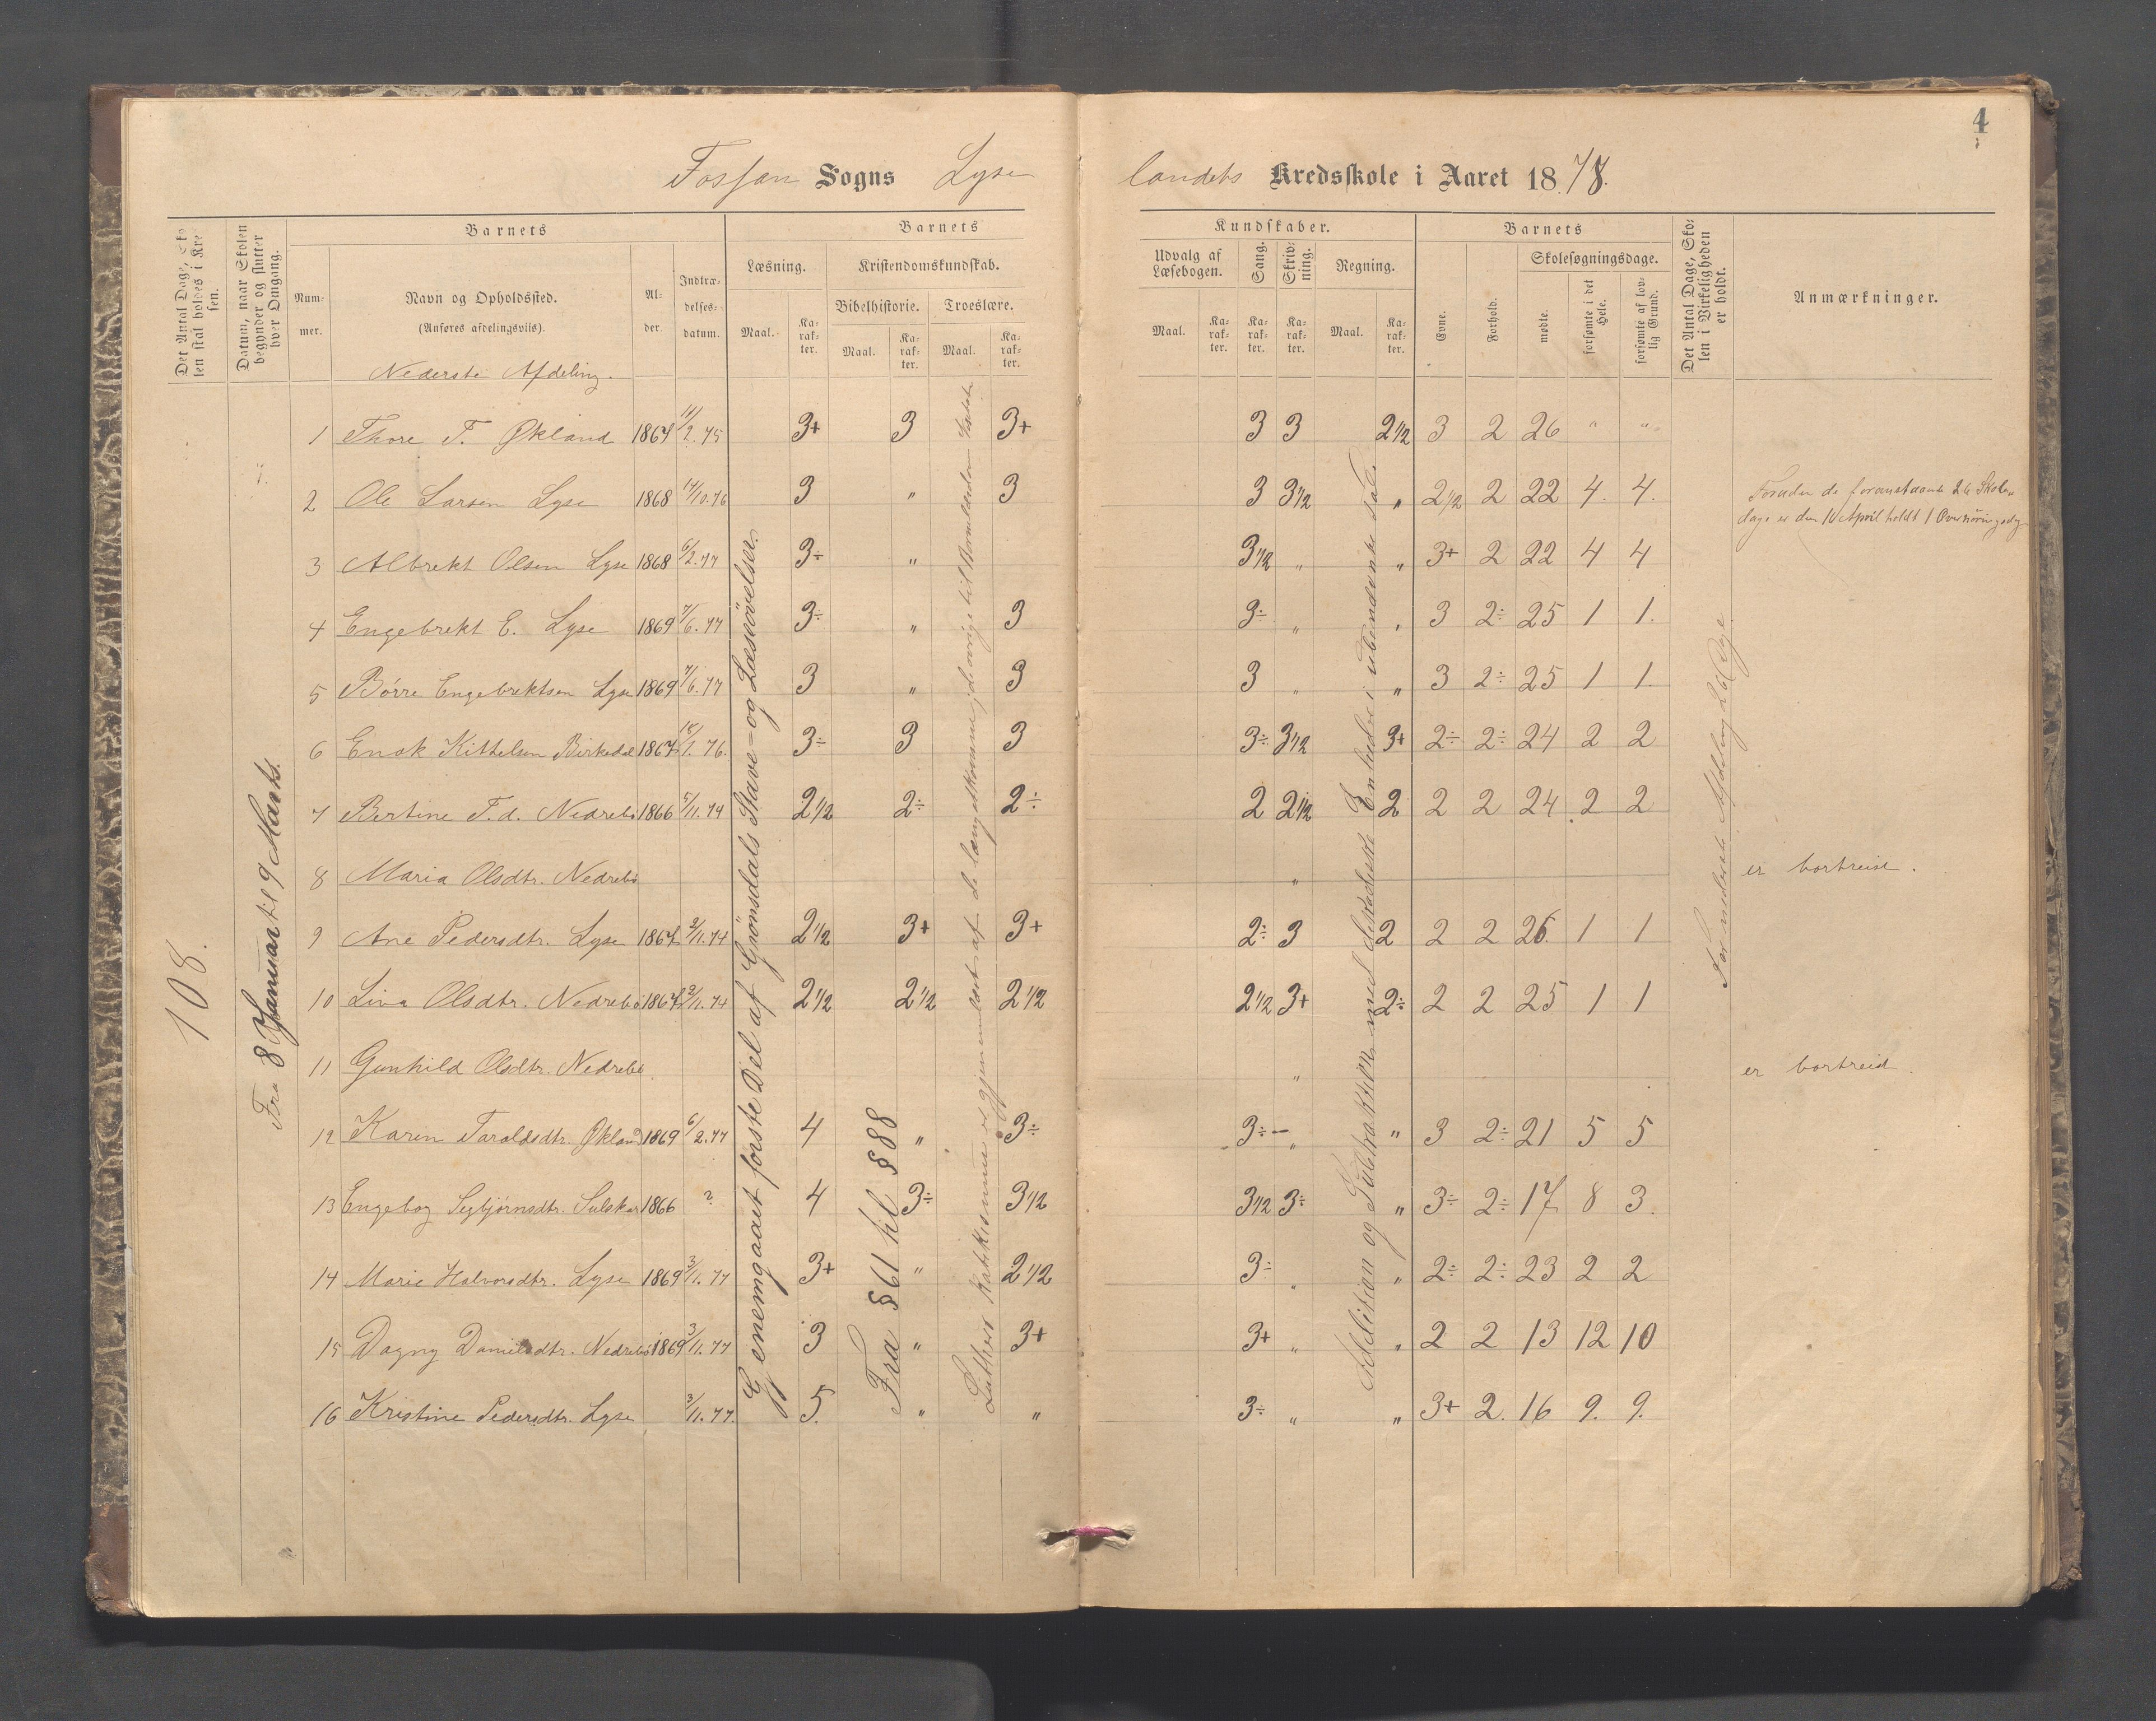 4
Fossan Sogns Lyse
landets Kredsskole i Aaret 1878.
Det Antal Dage, Skolen skal holdes i Kredsen.
Datum, naar Skolen begynder og slutter hver Omgang.
Barnets
Nummer.
Navn og Opholdssted.
(Anføres afdelingsviis).
Alder.
Indtrædelses-datum.
Barnets
Læsning.
Maal.
Karakter.
Kristendomskundskab.
Bibelhistorie.
Maal.
Karakter.
Troeslære.
Maal.
Karakter.
Kundskaber.
Udvalg af Læsebogen.
Maal.
Karakter.
Sang.
Karakter.
Skrivning.
Karakter.
Regning.
Maal.
Karakter.
Barnets
Evne.
Forhold.
Skolesøgningsdage.
mødte.
forsømte i det Hele.
forsømte af lovlig Grund.
Det Antal Dage, Skolen i Virkeligheden er holdt.
Anmærkninger.
Nederste Afdeling.
108.
Fra 8 Januar til 9 Marts.
Gjenemgaaet første Del af Grønsdals Stave- og Læseøvelser.
Fra § 61 til § 88
Luthers Katekismus er gjenemlært af de længstkomne, de øvrige til
Addition og Subtraktion med
Enkelte i ubenævnte Tal.
Afdeling 26 Dage.
1 Thore T. Økland 1867 11/2.75 3+ 3 3+ 3 3 2 1/2 3 2 26 " "
2 Ole Larsen Lyse 1868 14/10.76 3 " 3 3 3 1/2 " 2 1/2 2 22 4. 4.
Foruden de foranstaaende 26 Skoledage er den 10 April holdt 1
3 Albrekt Olsen Lyse 1868 6/2.77 3÷ " 3 1/2 " " 3+ 2 22 4 4
4 Engebrekt E. Lyse 1869 7/6.77 3÷ " 3 3÷ " " 3 2÷ 25 1 1.
5 Børre Engebrektsen Lyse 1869 7/6.77 3 " 3 3 " " 3 2÷ 25 1 1.
6 Enok Kittelsen Birkedal 1867 18/1.76. 3÷ 3 3 3÷ 3 1/2 3+ 2÷ 2÷ 24 2 2
7 Bertine T.d. Nedrebø 1866 5/11.74 2 1/2 2÷ 2÷ 2 2 1/2 2 2 2 24 2 2
8 Maria Olsdtr. Nedrebø " er bortreist.
9 Ane Pedersdtr. Lyse 1867 2/11.74 2 1/2 3+ 3+ 2÷ 3 2 2 2 26. 1 1
10 Lina Olsdtr. Nedrebø 1867 2/11.74 2 1/2 2 1/2 2 1/2 2 1/2 3+ 2÷ 2 2 25 1 1
11 Gunhild Olsdtr. Nedrebø " er bortreist.
12 Karen Taraldsdtr. Økland 1869 6/2.77 4 " 3÷ 3÷ " " 3 2÷ 21 5 5
13 Engebog Segbjørnsdtr. Sulskar 1866 ? 4 3÷ 3 1/2 3 1/2 3÷ " 3÷ 2÷ 17 8 3.
14 Marie Halvorsdtr. Lyse 1869 3/11.77 3+ " 2 1/2 3÷ " " 2÷ 2÷ 23 2 2
15 Dagny Danielsdtr. Nedrebø 1869 3/11.77 3 " 3+ 3+ " " 2 2 13 12 10
16 Kristine Pedersdtr. Lyse 3/11.77. 5. " " 3÷ " " 3+ 2. 16 9. 9.